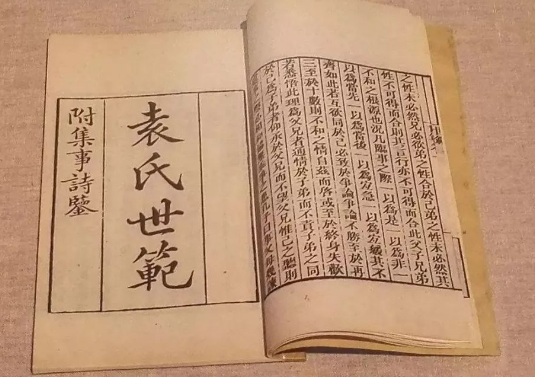 之性未必然兄必欲弟之性合於己弟之性未必然其
性不可得而合則其言行亦不可得而合此父子兄弟
不和之根源也況凡臨事之際一以為是一以為非一
以為當先一以為當後一以為宜急一以為宜緩其不
齊如此若互欲同於己必致於爭論爭論不勝至於再
三至於十數則不和之情自茲而啓或至於終身失歡
若悉悟此理為父兄者通情於子弟而不責子弟之同
於己為子弟者仰承於父兄而不望父兄惟己之聽則
子曰事父母幾諫
袁氏世範
附集事詩鑒